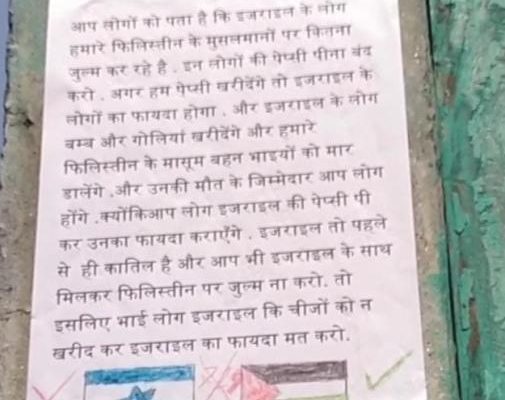 आप लोगों को पता है कि इजराइल के लोग
हमारे फिलिस्तीन के मुसलमानों पर कितना
जुल्म कर रहे है . इन लोगों की पेप्सी पीना बंद
करो . अगर हम पेप्सी खरीदेंगे तो इजराइल के
लोगों का फायदा होगा . और इजराइल के लोग
बम्ब और गोलियां खरीदेंगे और हमारे
फिलिस्तीन के मासूम बहन भाइयों को मार
डालेंगे .और उनकी मौत के जिम्मेदार आप लोग
होंगे .क्योंकिआप लोग इजराइल की पेप्सी पी
कर उनका फायदा कराएँगे . इजराइल तो पहले
से ही कातिल है और आप भी इजराइल के साथ
मिलकर फिलिस्तीन पर जुल्म ना करो. तो
इसलिए भाई लोग इजराइल कि चीजों को न
खरीद कर इजराइल का फायदा मत करो.